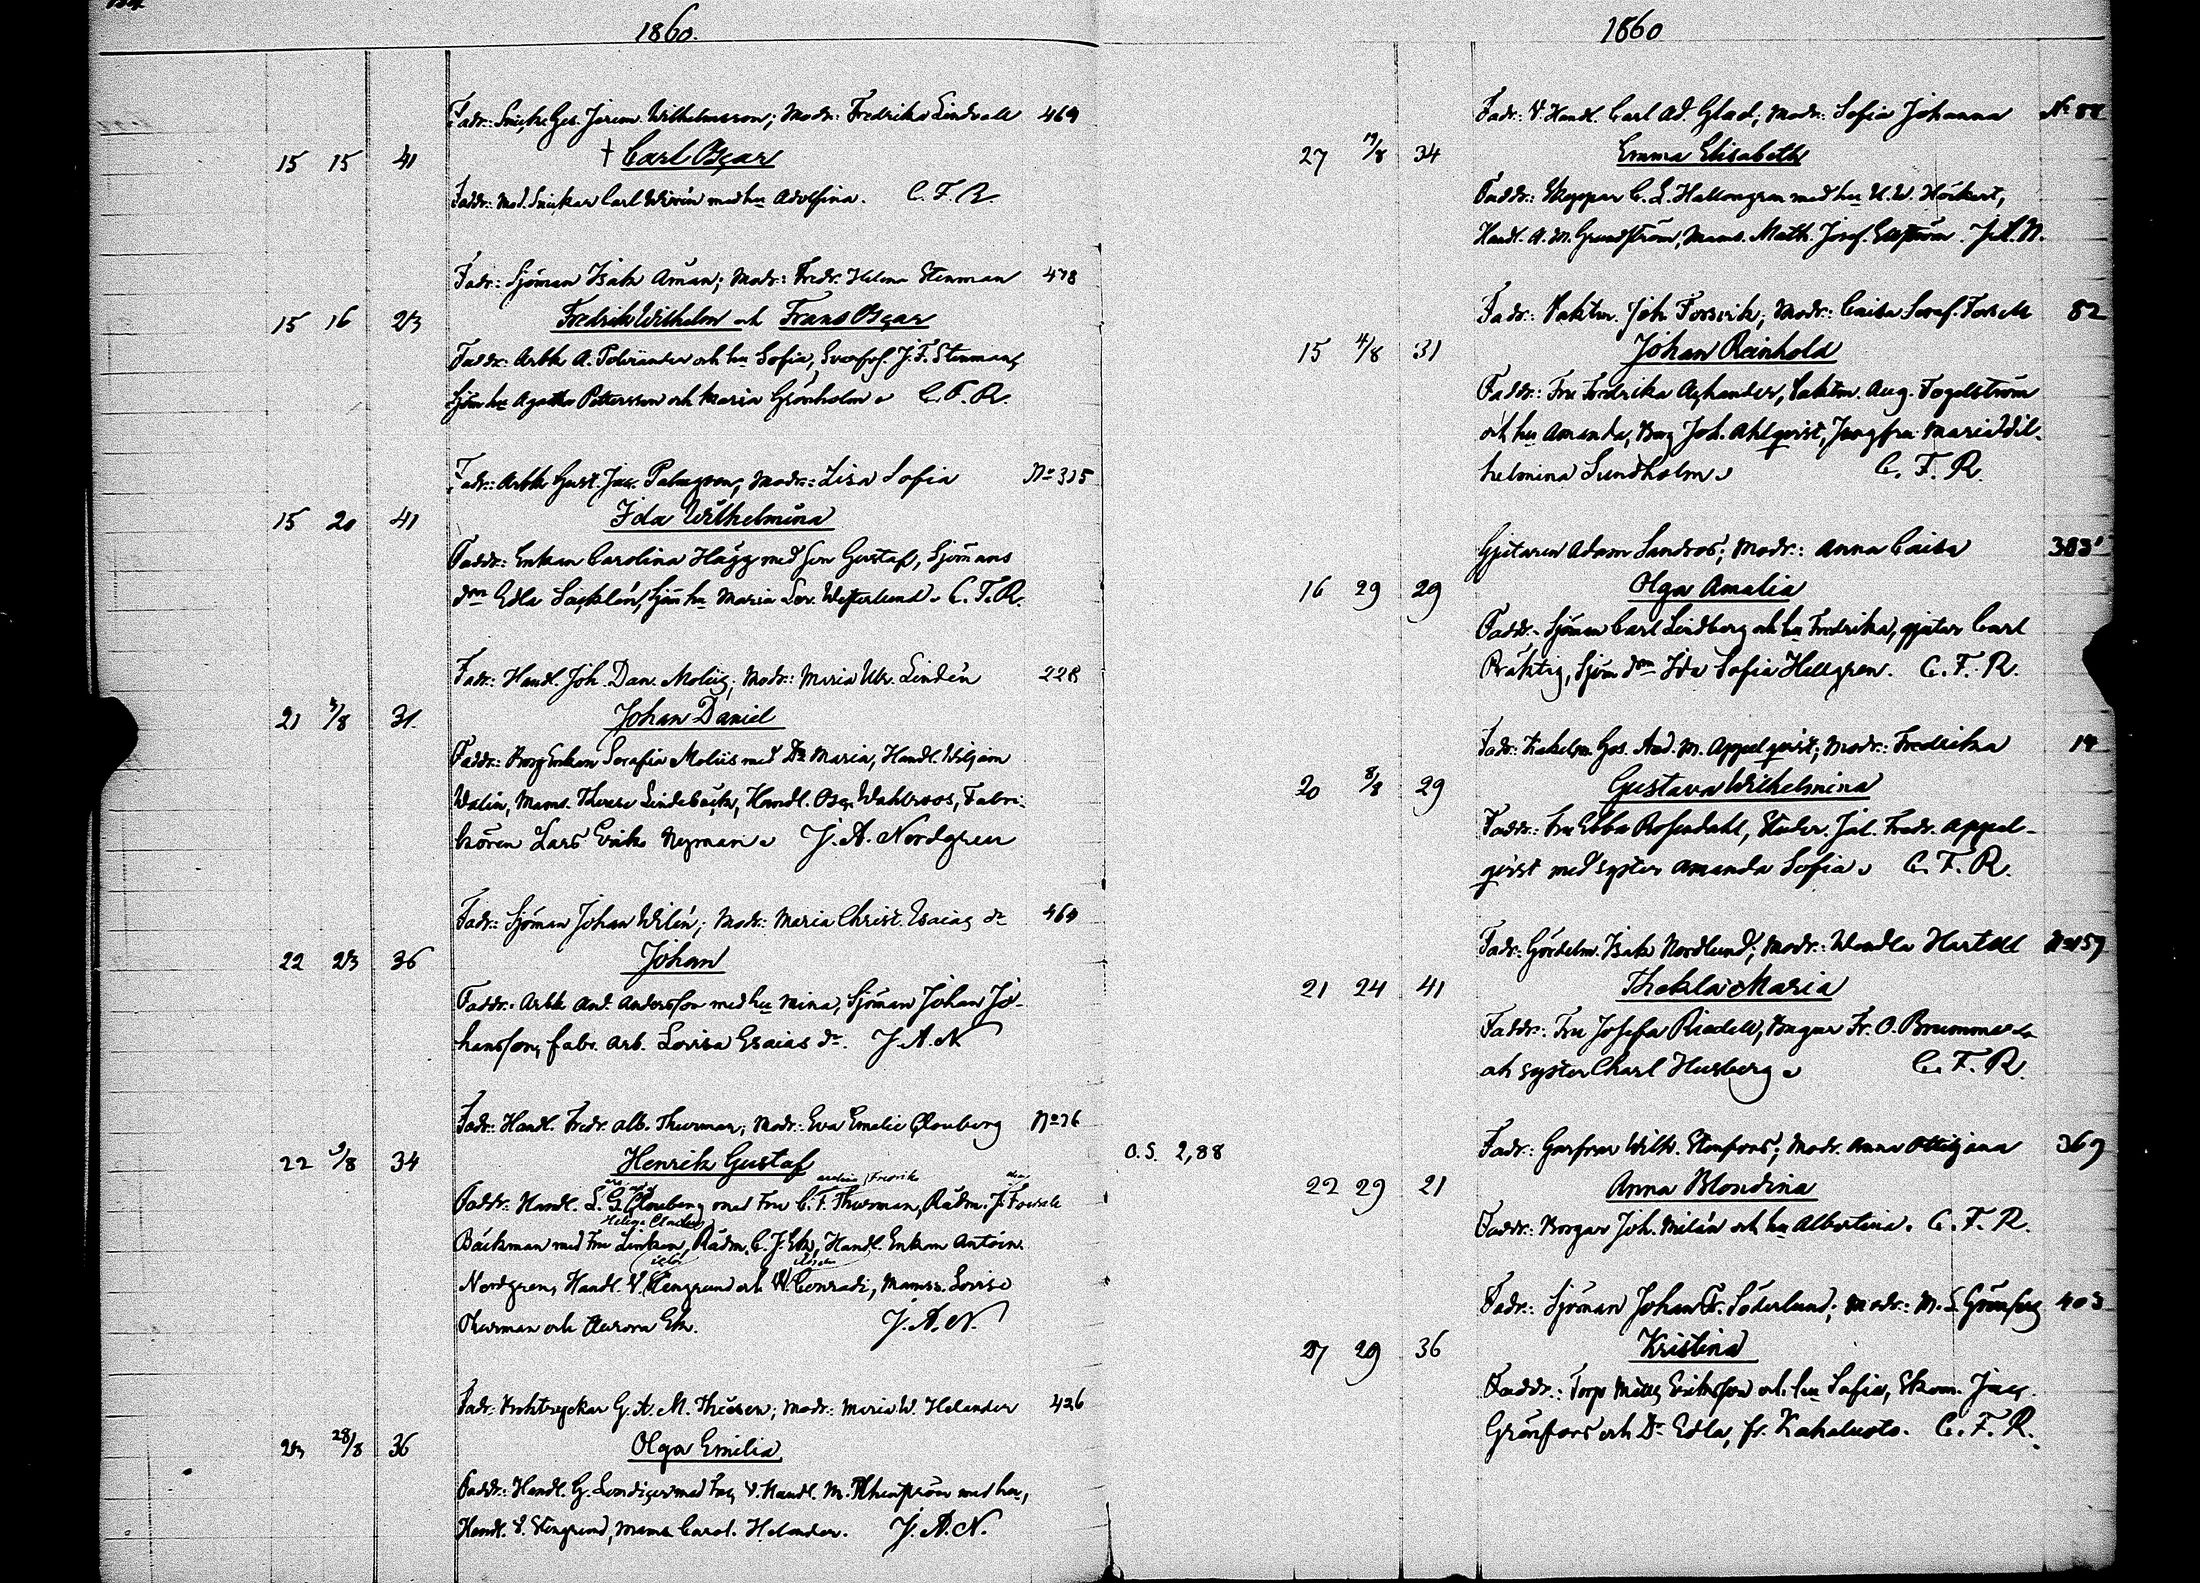 1860.
Fadr: Snick. Ges. Jerem. Wilhelmsson; Modr: Fredrika Lindvall 469
15 15 41 † Carl Oscar
Faddr: Mod. Snickar Carl Wirén med hu Adolfina. C. F. R.
Fadr: Sjöman Isak Åman; Modr: Fredr. Helena Stenman 478
15 16 23 Fredrik Wilhelm och Frans Oscar
Faddr: Arbk A. Polviander och hu Sofia, J. F. Stenman,
Sjöm hu Agatha Pettersson och Maria Grönholm. C. F. R.
Fadr: Arbk Gust. Jac. Palmgren; Modr: Lisa Sofia No 315
15 20 41 Ida Wilhelmina
Faddr: Enkan Carolina Hägg med Son Gustaf, Sjömans
dn Edla Sacklén, Sjöm hu Maria Lov. Westerlund. C. F. R.
Fadr: Handl. Joh. Dan. Moliis; Modr: Maria Ulr. Lindén 228
21 3/8 31 Johan Daniel
Faddr: Borg. Enkan Serafia Moliis med Dr Maria, Handl. Wiljam
Walin, Mams. Therese Lindebäck, Handl. Osc. Wahlroos, Fabri-
kören Lars Erik Nyman. J. A. Nordgren
Fadr: Sjöman Johan Wilén; Modr: Maria Christ. Esaias dr 464
22 23 36 Johan
Faddr: Arbk And. Andersson med hu Mina, Sjöman Johan Jo-
hansson, fabr. arb. Lovisa Esaias dr. J. A. N.
Fadr: Handl. Fredr. Alb. Thurman; Modr: Eva Emelie Clouberg No 76
22 5/8 34 Henrik Gustaf
Faddr: Handl. L. G. Clouberg med Fru C. F. Thurman, Rådm. J.
Bäckman med Fru Rådm. C. J. Ek, Handl. Enkan Antoin.
Nordgren, Handl. V. Stengrund och W. Conradi, Mamss. Lovise
Thurman och Aurora Ek. J. A. N.
Fadr: Boktryckar G. A. M. Thesen; Modr: Maria W. Helander 426
23 28/8 36 Olga Emilia
Faddr: Handl. G. med V. Handl. M. med hu,
Handl. V. Stengrund, Mams. Carol. Helander. J. A. N.
1860
Fadr: V. Handl. Carl Ad. Glad; Modr: Sofia Johanna No 88
27 19/8 34 Emma Elisabeth
Faddr: Skeppar C. L. Hallongren med hu U. W. Höckert,
Handl. A. M. Grundström, Mams. Math. Josef. J. A. N.
Fadr: Vaktm. Joh. Forsvik; Modr: Caisa Seraf. 82
15 4/8 31 Johan Reinhold
Faddr: Fru Fredrika Vaktm. Aug. Fogelström
och hu Amanda, Borg Joh. Ahlqvist, Jungfru Maria Wil-
helmina Sundholm. C. F. R.
Gjutaren Adam Sandros; Modr: Anna Caisa 383
16 29 29 Olga Amalia
Faddr: Sjöman Carl Lindberg och hu Fredrika, gjutar Carl
Präktig, Sjöm dn Ida Sofia Hellgren. C. F. R.
Fadr: Kakelm. Ges. And. M. Appelqvist; Modr: Fredrika 14
20 8/8 29 Gustava Wilhelmina
Faddr: Fru Ebba Rosendahl, Studer. Jul. Fredr. Appel-
qvist med syster Amanda Sofia. C. F. R.
Fadr: Gördelm. Isak Nordlund; Modr: Wendla Hartell No 159
21 24 41 Thekla Maria
Faddr: Fru Josefa Riedell, Bagar Fr. O. Brummer
och syster Charl Husberg. C. F. R.
O. S. 2,88
Fadr: Garfvar Wilh. Stenfors; Modr. Anna Ottiljana 369
22 29 21 Anna Blondina
Faddr: Borgar Joh. Milén och hu Albertina. C. F. R.
Fadr: Sjöman Johan Fr. Söderlund; Modr: M. S. Grönfors 403
27 29 36 Kristina
Faddr: Torp Matts Eriksson och hu Sofia, Skom. Jac.
Grönfors och Dr Edla, fr. Kahaluoto. C. F. R.